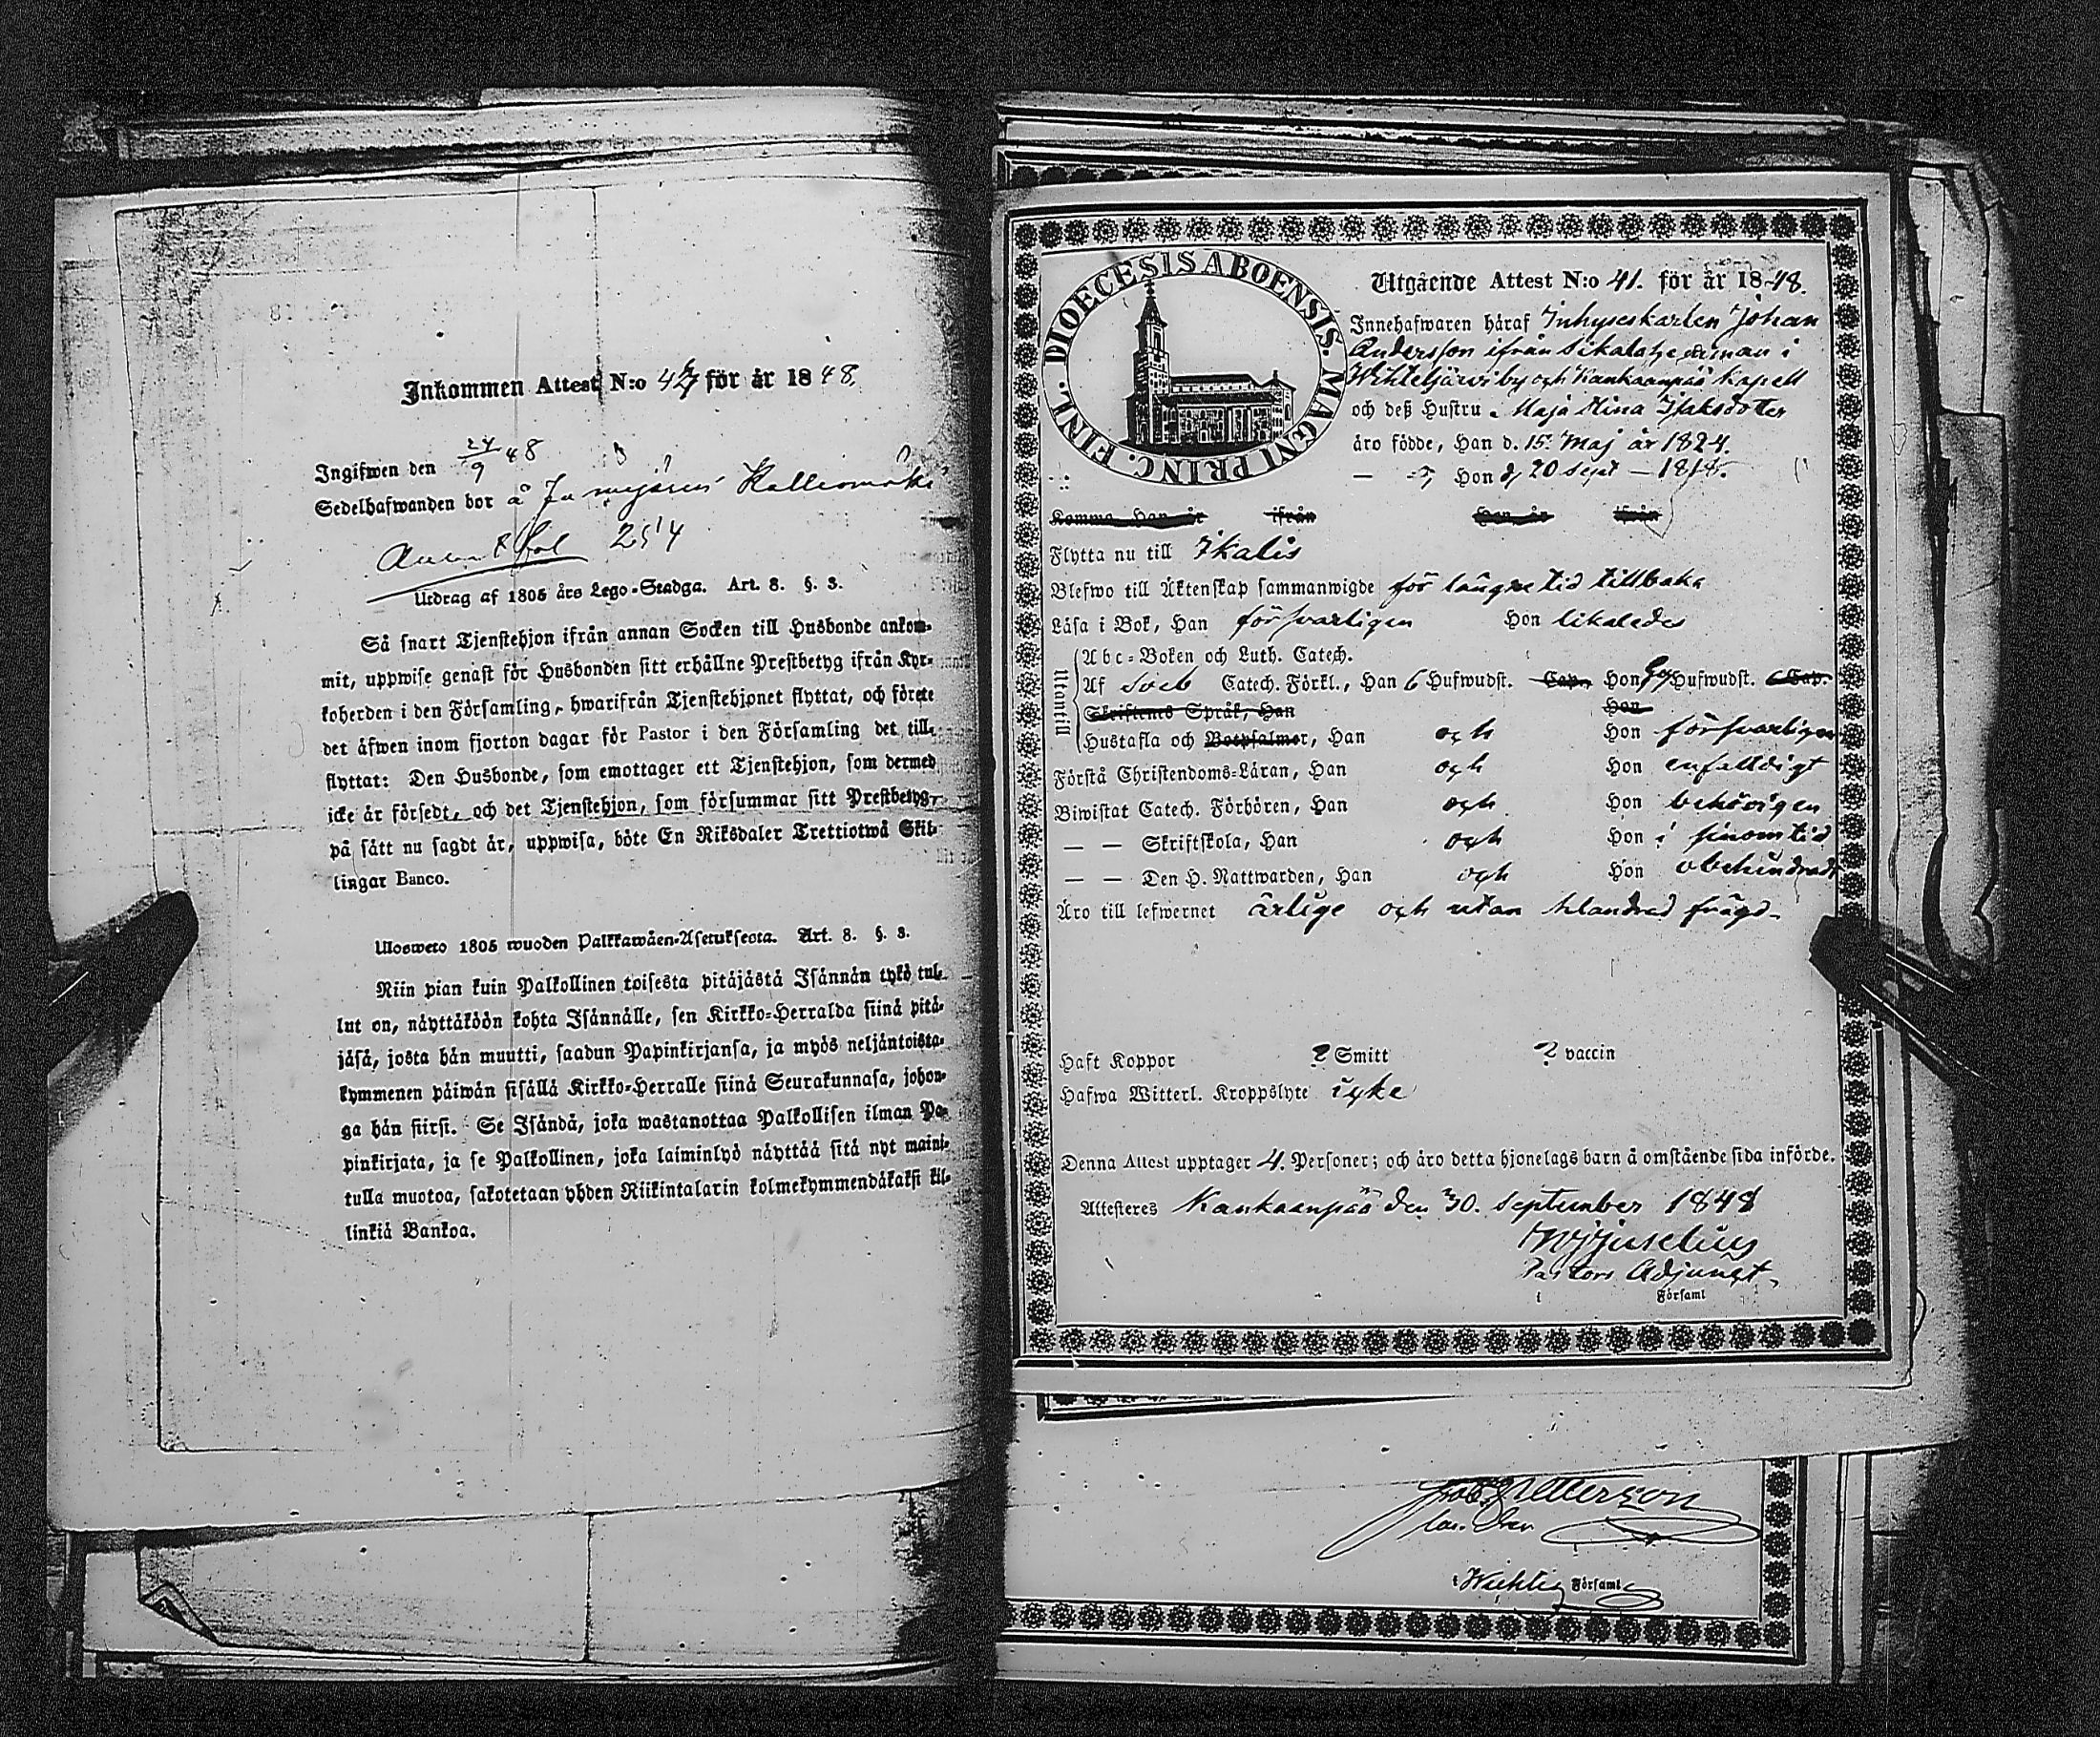 Inkommen Attest N:o 47 för år 1848.
Ingifwen den 24/9 48
Sedelhafwanden bor å Kalliomäki
Fol 254
Utdrag af 1805 års Lego-Stadga. Art. 8. §. 3.
Så snart Tjenstehjon ifrån annan Socken till Husbonde ankom-
mit, uppwise genast för Husbonden sitt erhållne Prestbetyg ifrån Kyr-
koherden i den Församling, hwarifrån Tjenstehjonet flyttat, och förete
det äfwen inom fjorton dagar för Pastor i den Församling det till-
flyttat: Den Husbonde, som emottager ett Tjenstehjon, som dermed
icke är försedt, och det Tjenstehjon, som försummar sitt Prestbetyg,
på sätt nu sagdt är, uppwisa, böte En Riksdaler Trettiotwå Skil-
lingar Banco.
Ulosweto 1805 wuoden Palkkawäen-Asetuksesta. Art. 8. §. 3.
Niin pian kuin Palkollinen toisesta pitäjästä Isännän tykö tul-
lut on, näyttäköön kohta Isännälle, sen Kirkko-Herralda siinä pitä-
jäsä, josta hän muutti, saadun Papinkirjansa, ja myös neljäntoista-
kymmenen päiwän sisällä Kirkko-Herralle siinä Seurakunnasa, johon-
ga hän siirsi. Se Isändä, joka wastanottaa Palkollisen ilman Pa-
pinkirjata, ja se Palkollinen, joka laiminlyö näyttää sitä nyt maini-
tulla muotoa, sakotetaan yhden Riikintalarin kolmekymmendäkaksi kil-
linkiä Bankoa.
FINL. DIOECESIS ABOENSIS. MAGNI PRINC.
Utgående Attest N:o 41. för år 1848.
Innehafwaren häraf Inhyseskarlen Johan
Andersson ifrån i
by och Kankaanpää kapell
och deß Hustru Maja Stina Isaksdotter
äro födde, Han d. 15 Maj år 1824.
Hon d 20 Sept
Komma Han år ifrån Hon år ifrån
Flytta nu till Ikalis
Blefwo till Äktenskap sammanwigde för längre tid tillbaka
Läsa i Bok, Han försvarligen Hon likaledes
Utantill
Abc-Boken och Luth. Catech.
Af Sveb Catech. Förkl., Han 6 Hufwudst. Cap., Hon Hufwudst. Cap.
Skriftenes Språk, Han Hon
Hustafla och Botpsalmer, Han och Hon försvarligen
Förstå Christendoms-Läran, Han och Hon enfalldigt
Biwistat Catech. Förhören, Han och Hon behörigen
— — Skriftskola, Han och Hon i sinom tid
— — Den H. Nattwarden, Han och Hon obehindradt
Äro till lefwernet ärlige och utan klandrad frägd
Haft Koppor ? Smitt ? vaccin
Hafwa Witterl. Kroppslyte icke
Denna Attest upptager 4. Personer; och äro detta hjonelags barn å omstående sida införde.
Attesteres Kankaanpää den 30. September 1848
Pastors Adjunct
i Församl
i Församl